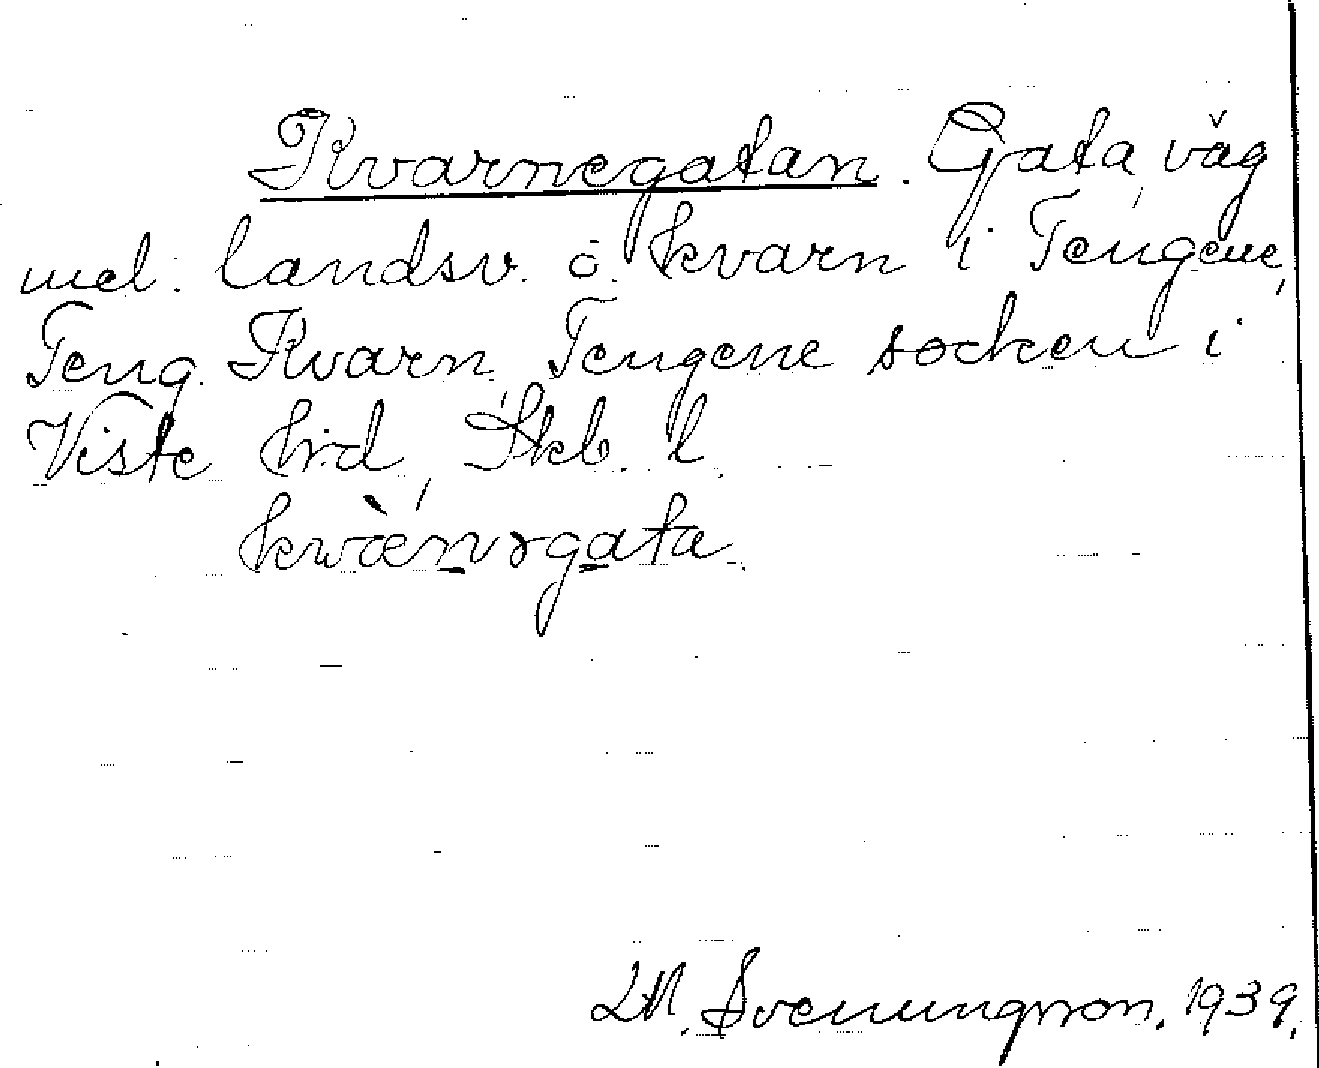 Kvarnegatan. Gata, väg
mel. landsv. o. kvarn i Tengene,
Teng. Kvarn, Tengene socken i
Viste hrd, Skb. l.
kwæ̀nɤgata.
M. Svenungsson. 1939.